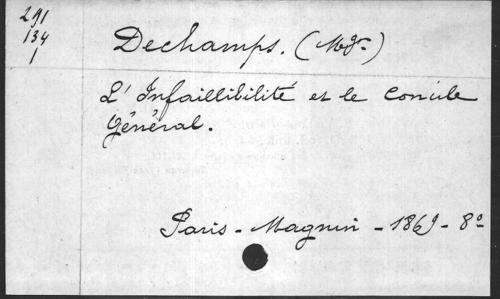 291
134
1
Dechamps. (Mgr.)
L'Infaillibilité et le concile
Général.
Paris - Magnin - 1869 - 8º